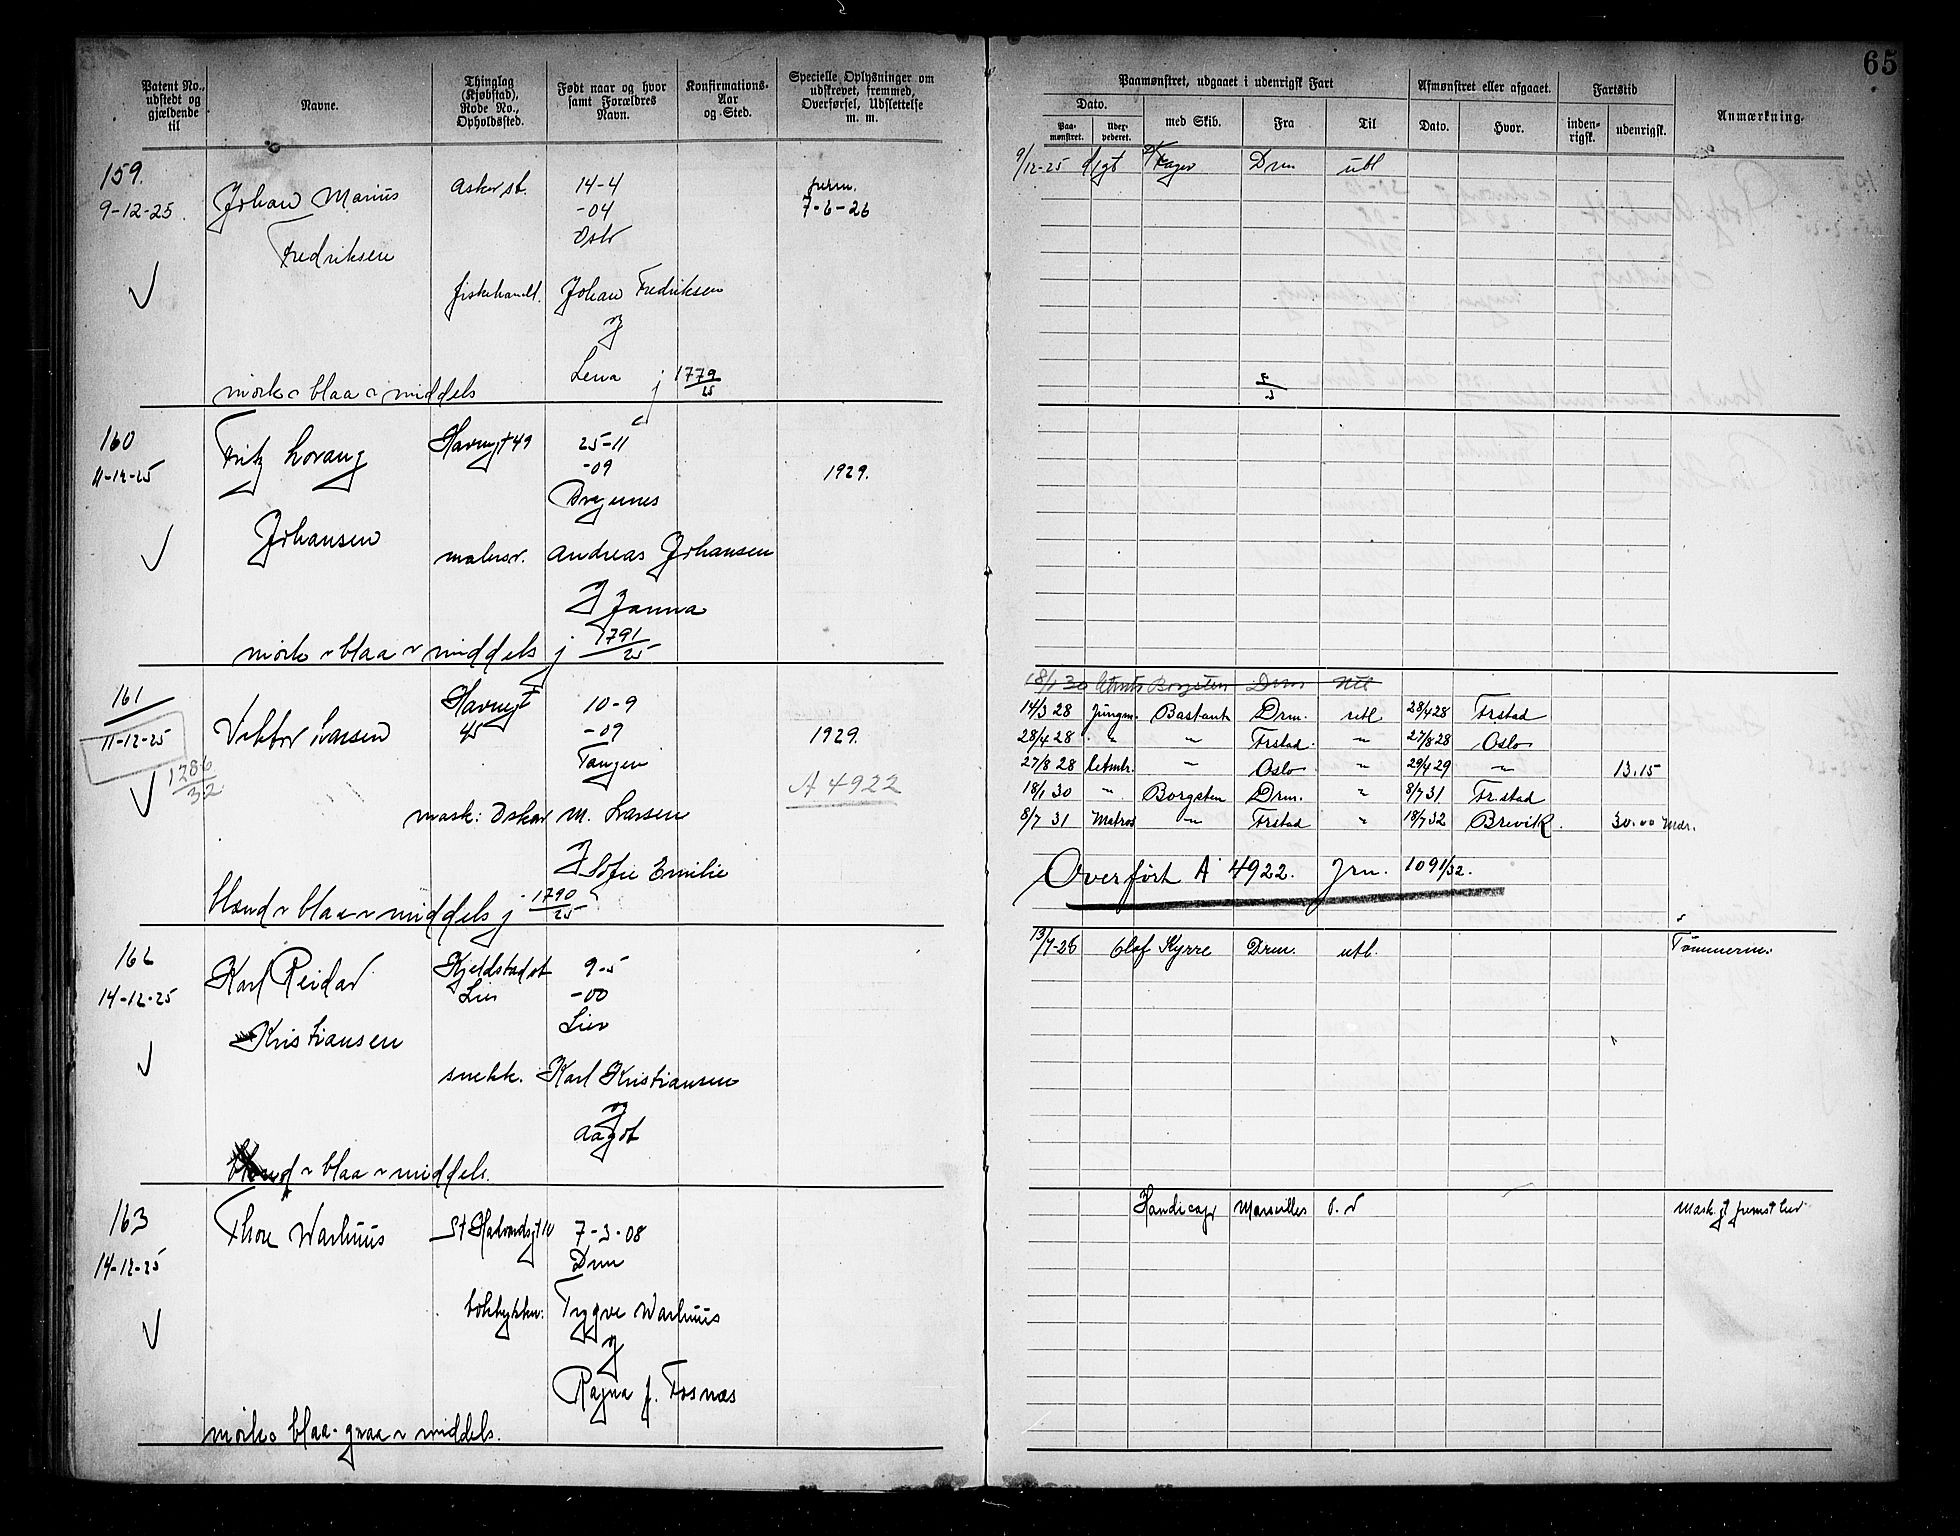 65
Patent No., udstedt og gjældende til
Navne.
Thinglag (Kjøbstad), Rode No., Opholdssted.
Født naar og hvor samt Forældres Navn.
Konfirmations-Aar og -Sted.
Specielle Oplysninger om udskrevet, fremmed, Overførsel, Udslettelse m. m.
Paamønstret, udgaaet i udenrigsk Fart
Afmønstret eller afgaaet.
Fartstid
Anmærkning.
Dato.
med Skib.
Fra
Til
Dato.
Hvor.
inden-rigsk.
udenrigsk.
Paa-mønstret.
159.
9-12-25.
Johan Marius
Fredriksen
Asker st.
14-4
-04
Oslo
7-6-26
fiskehandl. Johan Fredriksen
og
Lena
j 1779/25
mørk blaa middels
9/12-25
Drm
utl
160
11-12-25
Fritz
Johansen
Havnegt 49
25-11
-09
Bragernes
1929.
malersv. Andreas Johansen
Janna
mørk blaa middels j 1791/25
161
11-12-25
1286/32
Viktor Larsen
Havnegt
45
10-9
-09
Tangen
1929.
A 4922
mask: Oskar M. Larsen
Sofie Emilie
blond blaa middels j 1790/25
18/1 30 Borgsten Drm Utl
14/3 28 Jungm. Drm. utl. 28/4 28 Frstad
28/4 28 " " Frstad. " 27/8 28 Oslo
27/8 28 " Oslo " 29/4 29 " 13.15
18/1 30 " Borgsten Drm. " 8/7 31 Fr.stad
8/7 31 Matros " Frstad " 18/7 32 Brevik. 30.00 Mdr.
Overført A 4922. Jrn. 1091/32.
162
14-12-25
Karl Reidar
Kristiansen
Kjeldstad st
Lier
9-5
-00
Lier
snekk. Karl Kristiansen
og
Aagot
blond blaa middels.
13/7-26 Olaf Kyrre Drm. utl.
Tømmerm.
163
14-12-25
Thore Warhuus
St Halvardsgt 10
7-3-08
Drm
Trygve Warhuus
og
Ragna f. Fosnæs
mørk blaa-graa middels.
Handicap Marseilles